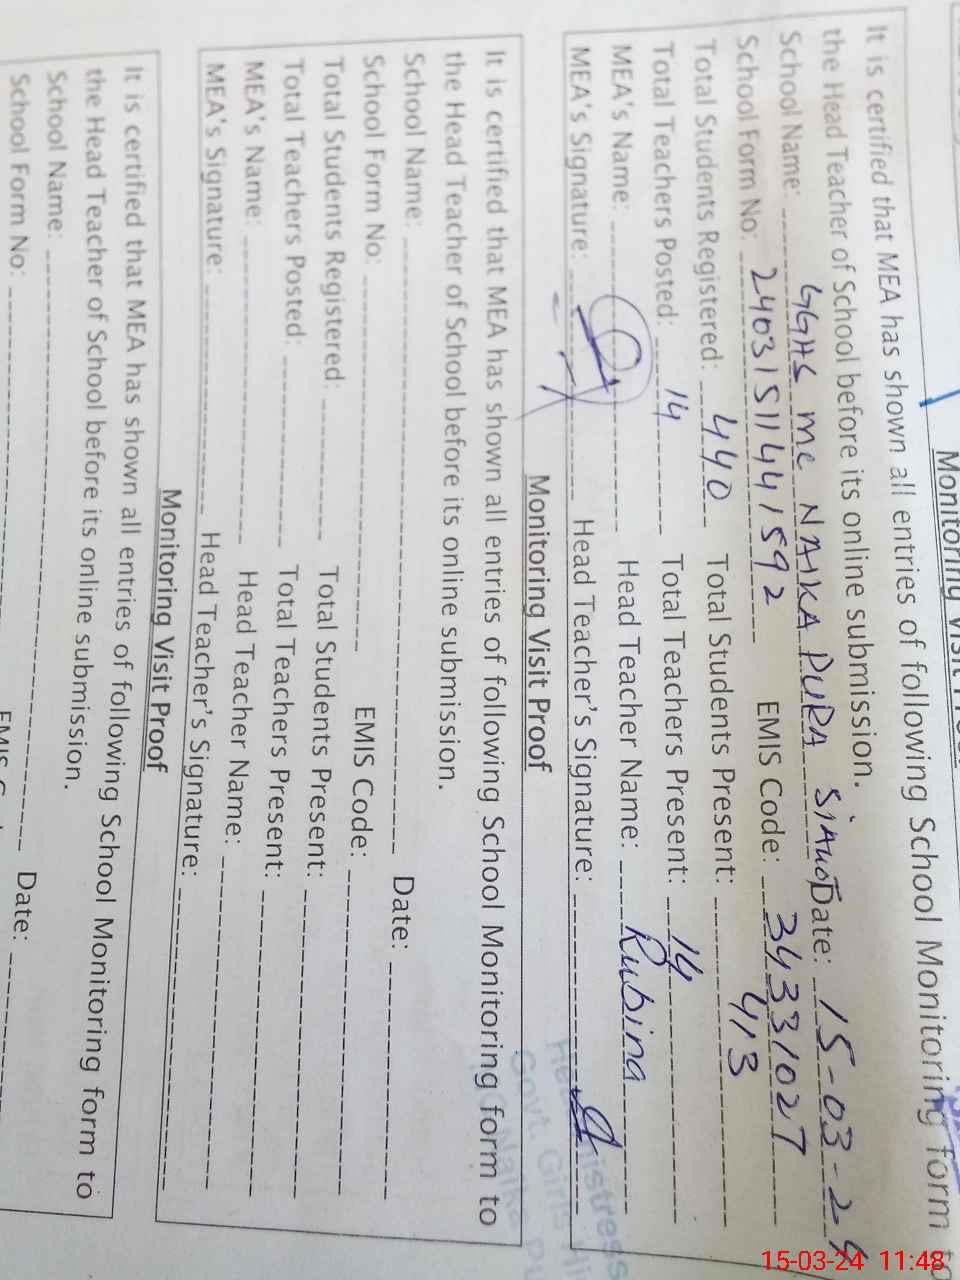 Monitoring Visit Proof
It is certified that MEA has shown all entries of following School Monitoring form to
the Head Teacher of School before its online submission.
School Name: GGHS mc NAIKA PURA Date: 15-03-24
School Form No: 24031511441592 EMIS Code: 34331027
Total Students Registered: 440 Total Students Present: 413
Total Teachers Posted: 14 Total Teachers Present: 14
MEA's Name: Head Teacher Name: Rubina
MEA's Signature: Head Teacher's Signature:
Monitoring Visit Proof
It is certified that MEA has shown all entries of following School Monitoring form to
the Head Teacher of School before its online submission.
School Name: Date:
School Form No: EMIS Code:
Total Students Registered: Total Students Present:
Total Teachers Posted: Total Teachers Present:
MEA's Name: Head Teacher Name:
MEA's Signature: Head Teacher's Signature:
Monitoring Visit Proof
It is certified that MEA has shown all entries of following School Monitoring form to
the Head Teacher of School before its online submission.
School Name: Date:
School Form No:
Govt. Girls
Naika
15-03-24 11:48